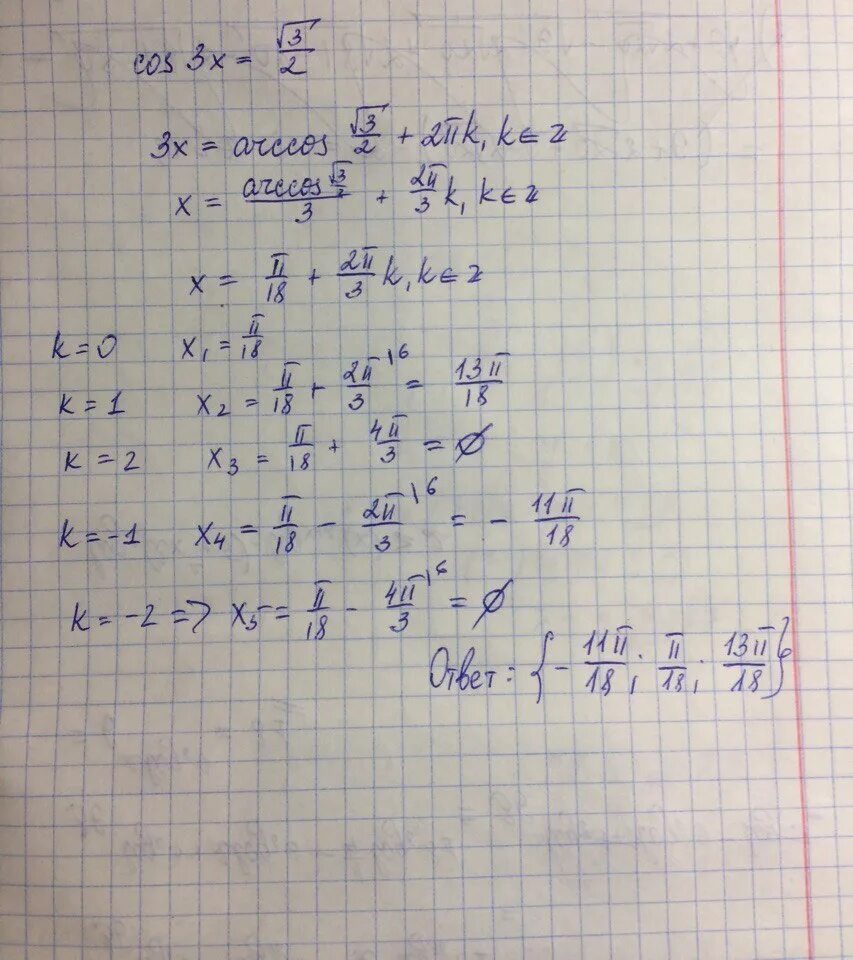 cos 3x = √3/2
3x = arccos √3/2 + 2πk, k ∈ z
x = (arccos √3/2)/3 + 2π/3 k, k ∈ z
x = π/18 + 2π/3 k, k ∈ z
k = 0 x₁ = π/18
k = 1 x₂ = π/18 + 2π/3 \6 = 13π/18
k = 2 x₃ = π/18 + 4π/3 = ∅
k = -1 x₄ = π/18 - 2π/3 \6 = - 11π/18
k = -2 => x₅ = π/18 - 4π/3 \6 = ∅
Ответ: {- 11π/18; π/18; 13π/18}